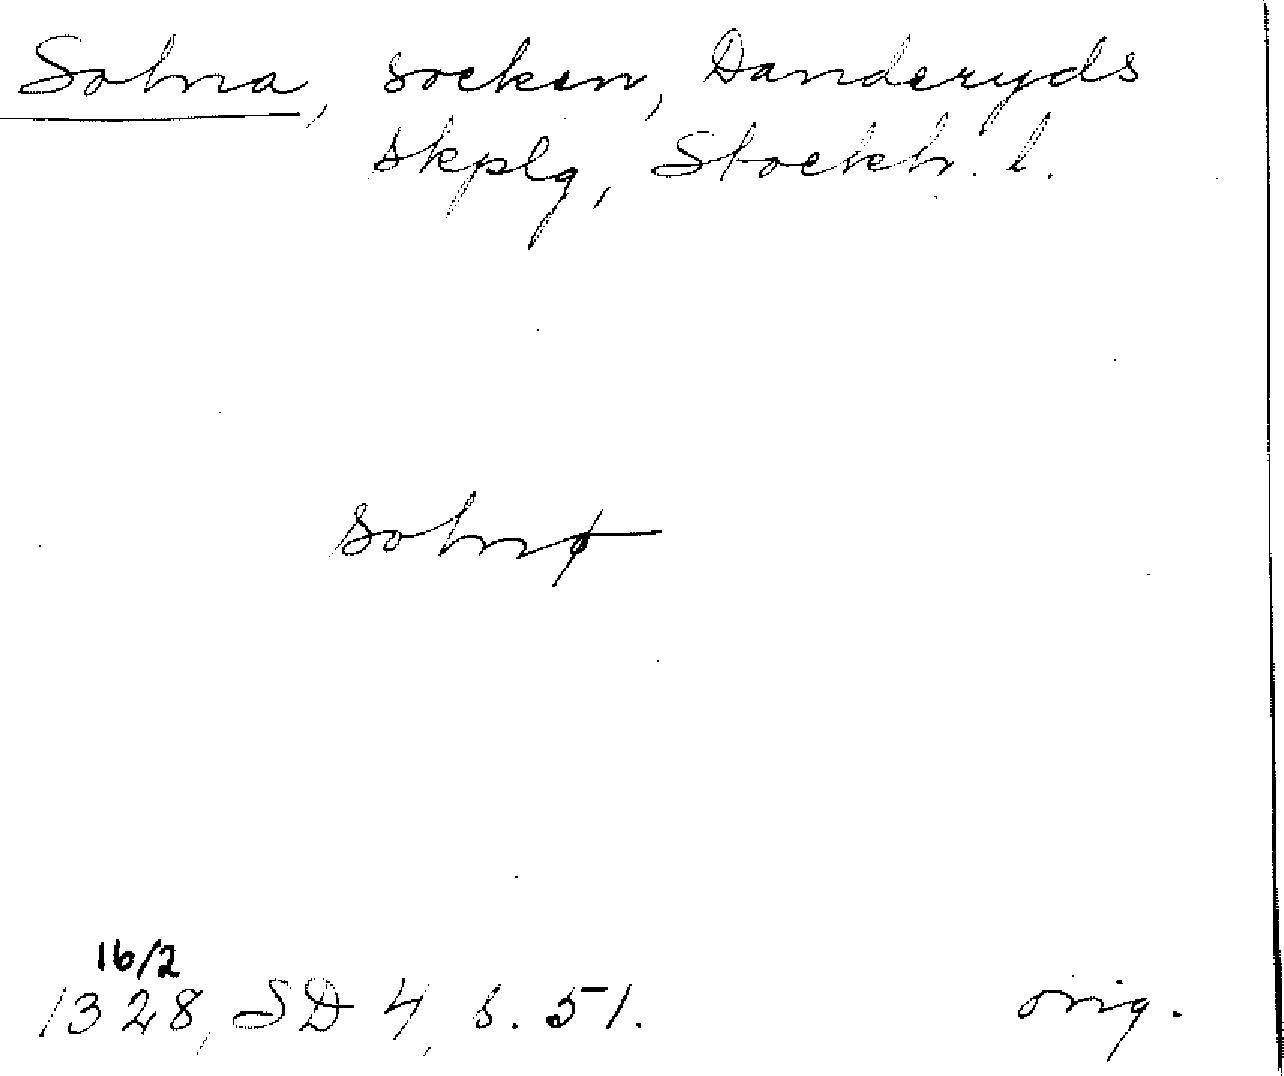 Solna, socken, Danderyds
skplg, Stockh. l.
solnø
16/2
1328, SD 4, s. 51.
orig.